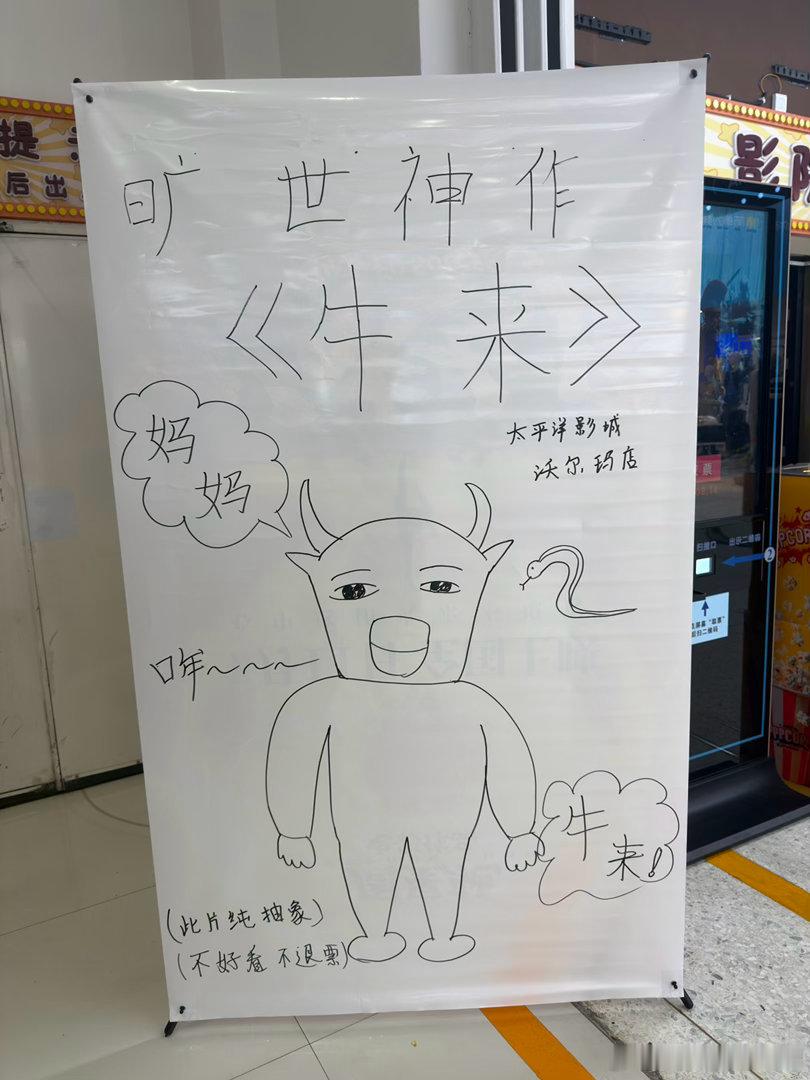 旷世神作
《牛来》
太平洋影城
沃尔玛店
妈
妈
哞~~~
牛
来!
(此片纯抽象)
(不好看不退票)
提
后出
影院
票
2